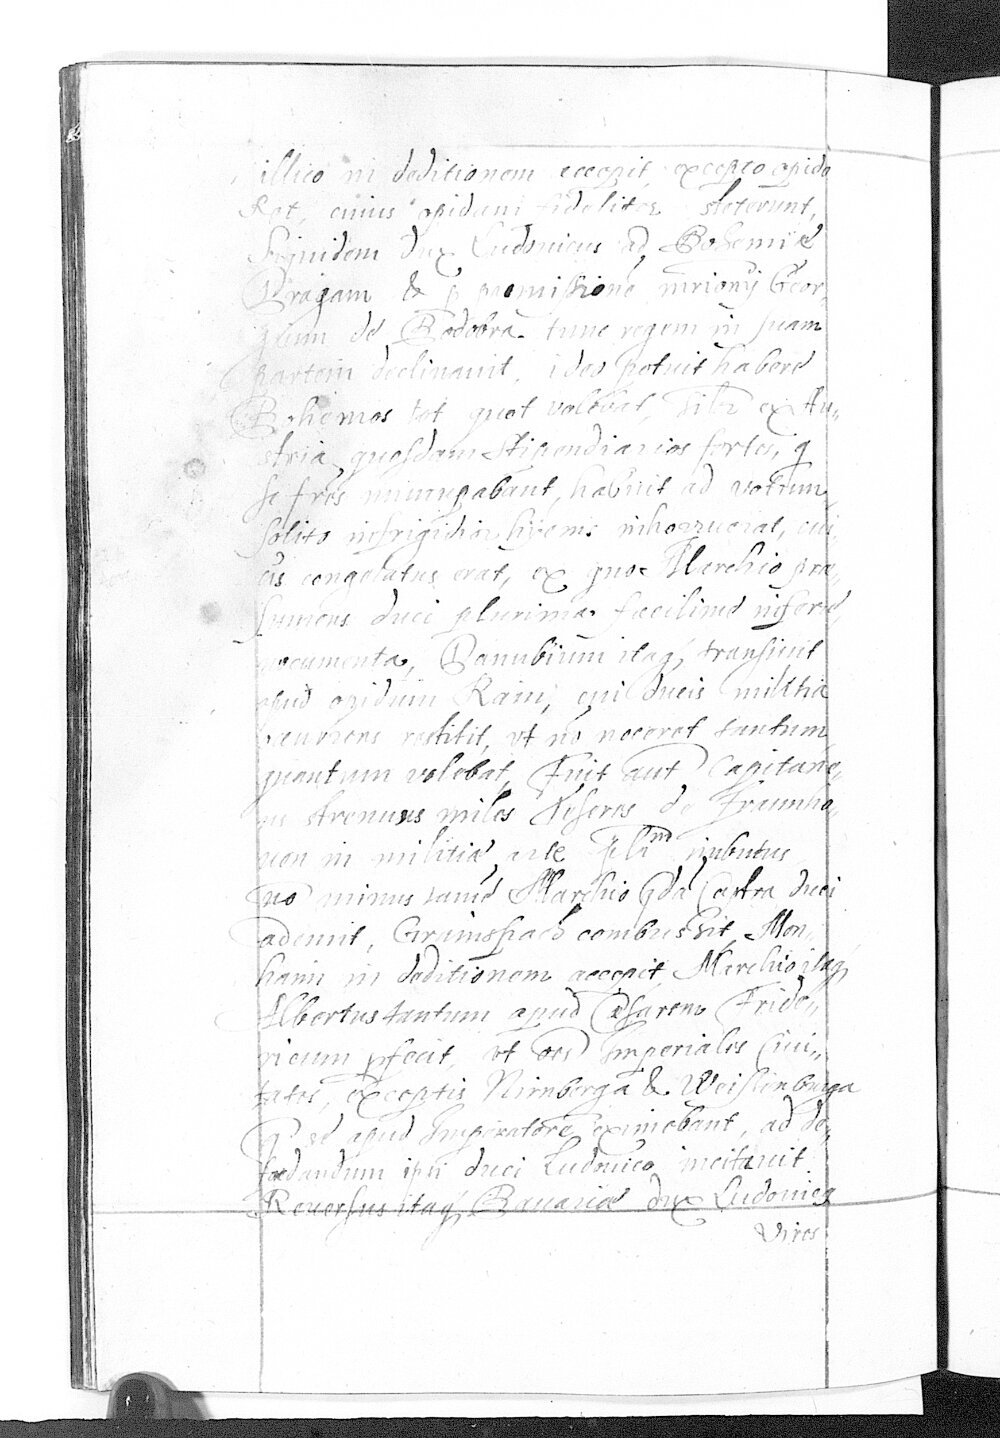 illico in deditionem accepit, excepto opido
Rot, cuius opidani fideliter steterunt,
Siquidem dux Ludouicus ad Bohemiã
Pragam & p promissionẽ mrionij Geor„
gium de Bodebra tunc regem in suam
partem declinauit, ideo potuit habere
Bohemos tot quot volebat, sibi ex Au„
stria quosdam stipendiarios fortes, q
se frẽs nuncupabant, habuit ad votum,
solito infrigidior hyems inhorruerat,
congelatus erat, ex quo Marchio præ„
sumens duci plurima facilime inferre
nocumenta, Danubium itaq transiuit
apud opidum Rain, cui ducis militia
occurrens restitit, vt nõ noceret tantum,
quantum volebat, Fuit aut Capitane„
us strenuus miles de Fraunho„
uen in militiæ arte plim imbutus
nõ minus tamẽ Marchio qdã Castra duci
ademit, Graimspach combussit, Mon„
haim in deditionem accepit, Marchio itaq
Albertus tantum apud Cæsarem Fride„
ricum pfecit, vt oẽs Imperiales Ciui„
tates, exceptis Nirnberga & Weissenburga
q se apud Imperatorẽ eximebant, ad de„
fidandum ipsi duci Ludouico incitauit.
Reuersus itaq Bauariæ dux Ludouicq
Vires